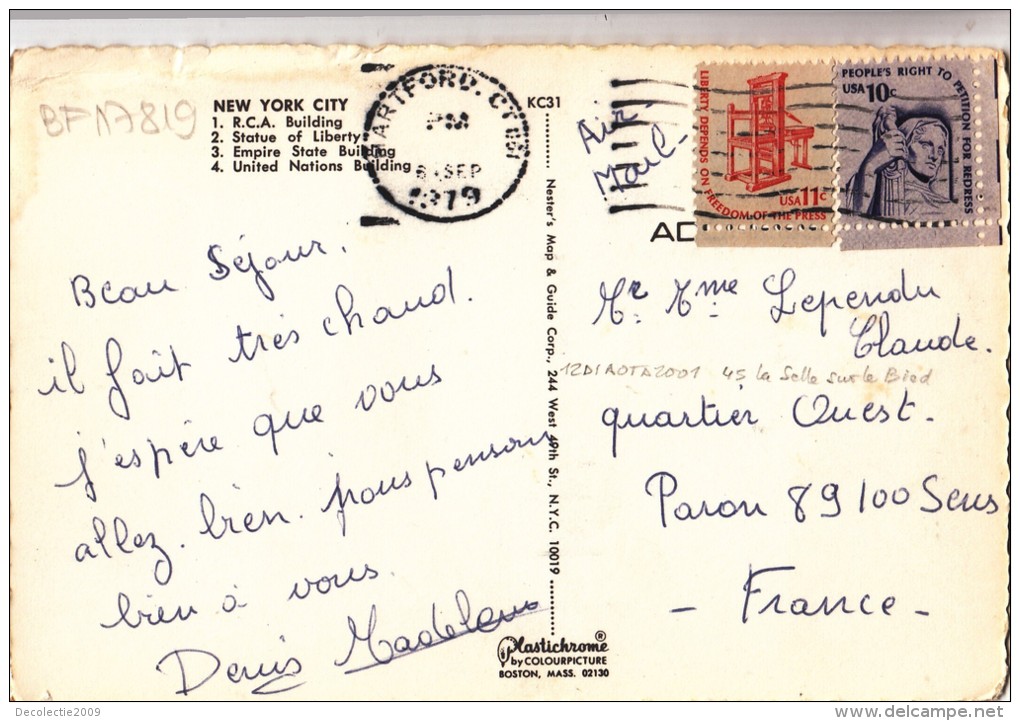 BFN7819
NEW YORK CITY
1. R.C.A. Building
2. Statue of Liberty
3. Empire State Building
4. United Nations Building
HARTFORD, CT
PM
SEP
1979
KC31
Air
Mail
LIBERTY DEPENDS ON FREEDOM OF THE PRESS
USA 11c
PEOPLE'S RIGHT TO PETITION FOR REDRESS
USA 10c
AD
Beau Séjour.
il fait très chaud.
j'espère que vous
allez bien. nous pensons
bien à vous.
Denis Madelena
Nester's Map & Guide Corp., 244 West 49th St., N.Y.C. 10019
Mr Mme Lependu
Claude.
12D1AOTA2001 45 la Selle sur le Bied
quartier Ouest.
Paron 89100 Sens
- France -
Plastichrome®
by COLOURPICTURE
BOSTON, MASS. 02130
Decolectie2009
delcampe.net